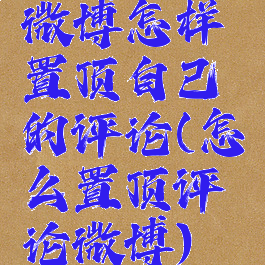 微博怎样
置顶自己
的评论(怎
么置顶评
论微博)